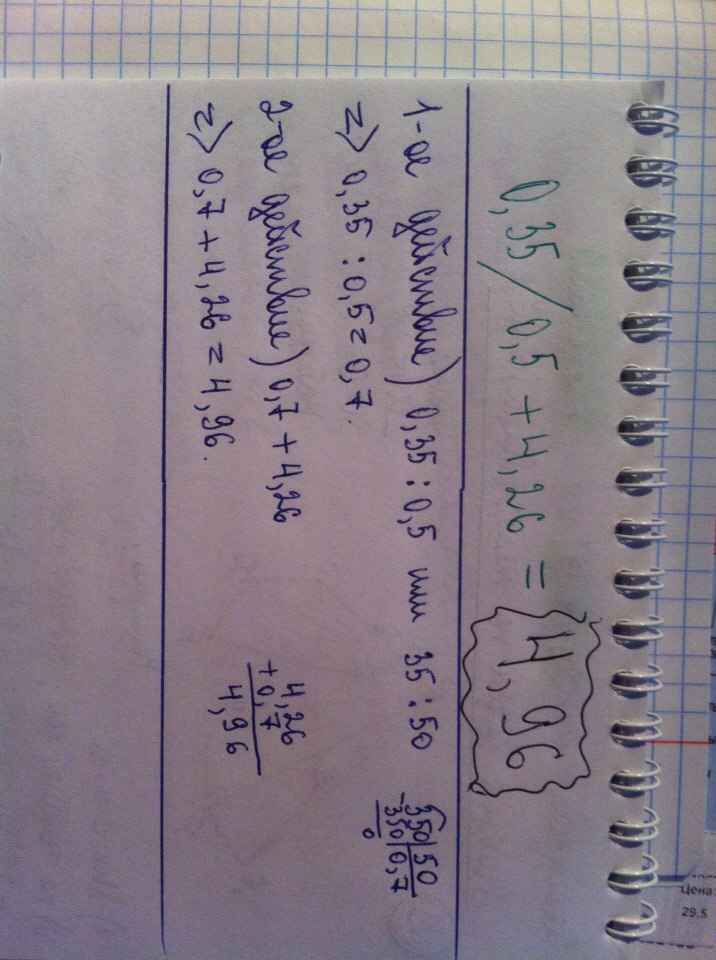 0,35/0,5 + 4,26 = 4,96
1-ое действие) 0,35 : 0,5 или 35 : 50
350 | 50
-350 | 0,7
0
=> 0,35 : 0,5 = 0,7.
2-ое действие) 0,7 + 4,26
4,26
+ 0,7
4,96
=> 0,7 + 4,26 = 4,96.
Цена
29.5